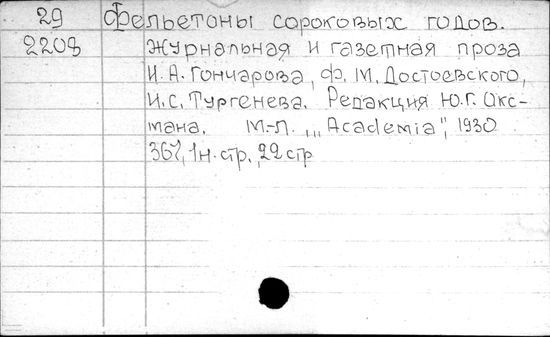 29 Фельетоны сороковых годов.
2208 журнальная и газетная проза
И.А. Гончарова, Ф.М. Достоевского,
И.С. Тургенева. Редакция Ю.Г. Окс-
мана. М.-Л. „Academia", 1930
367, 1н. стр., 22 стр